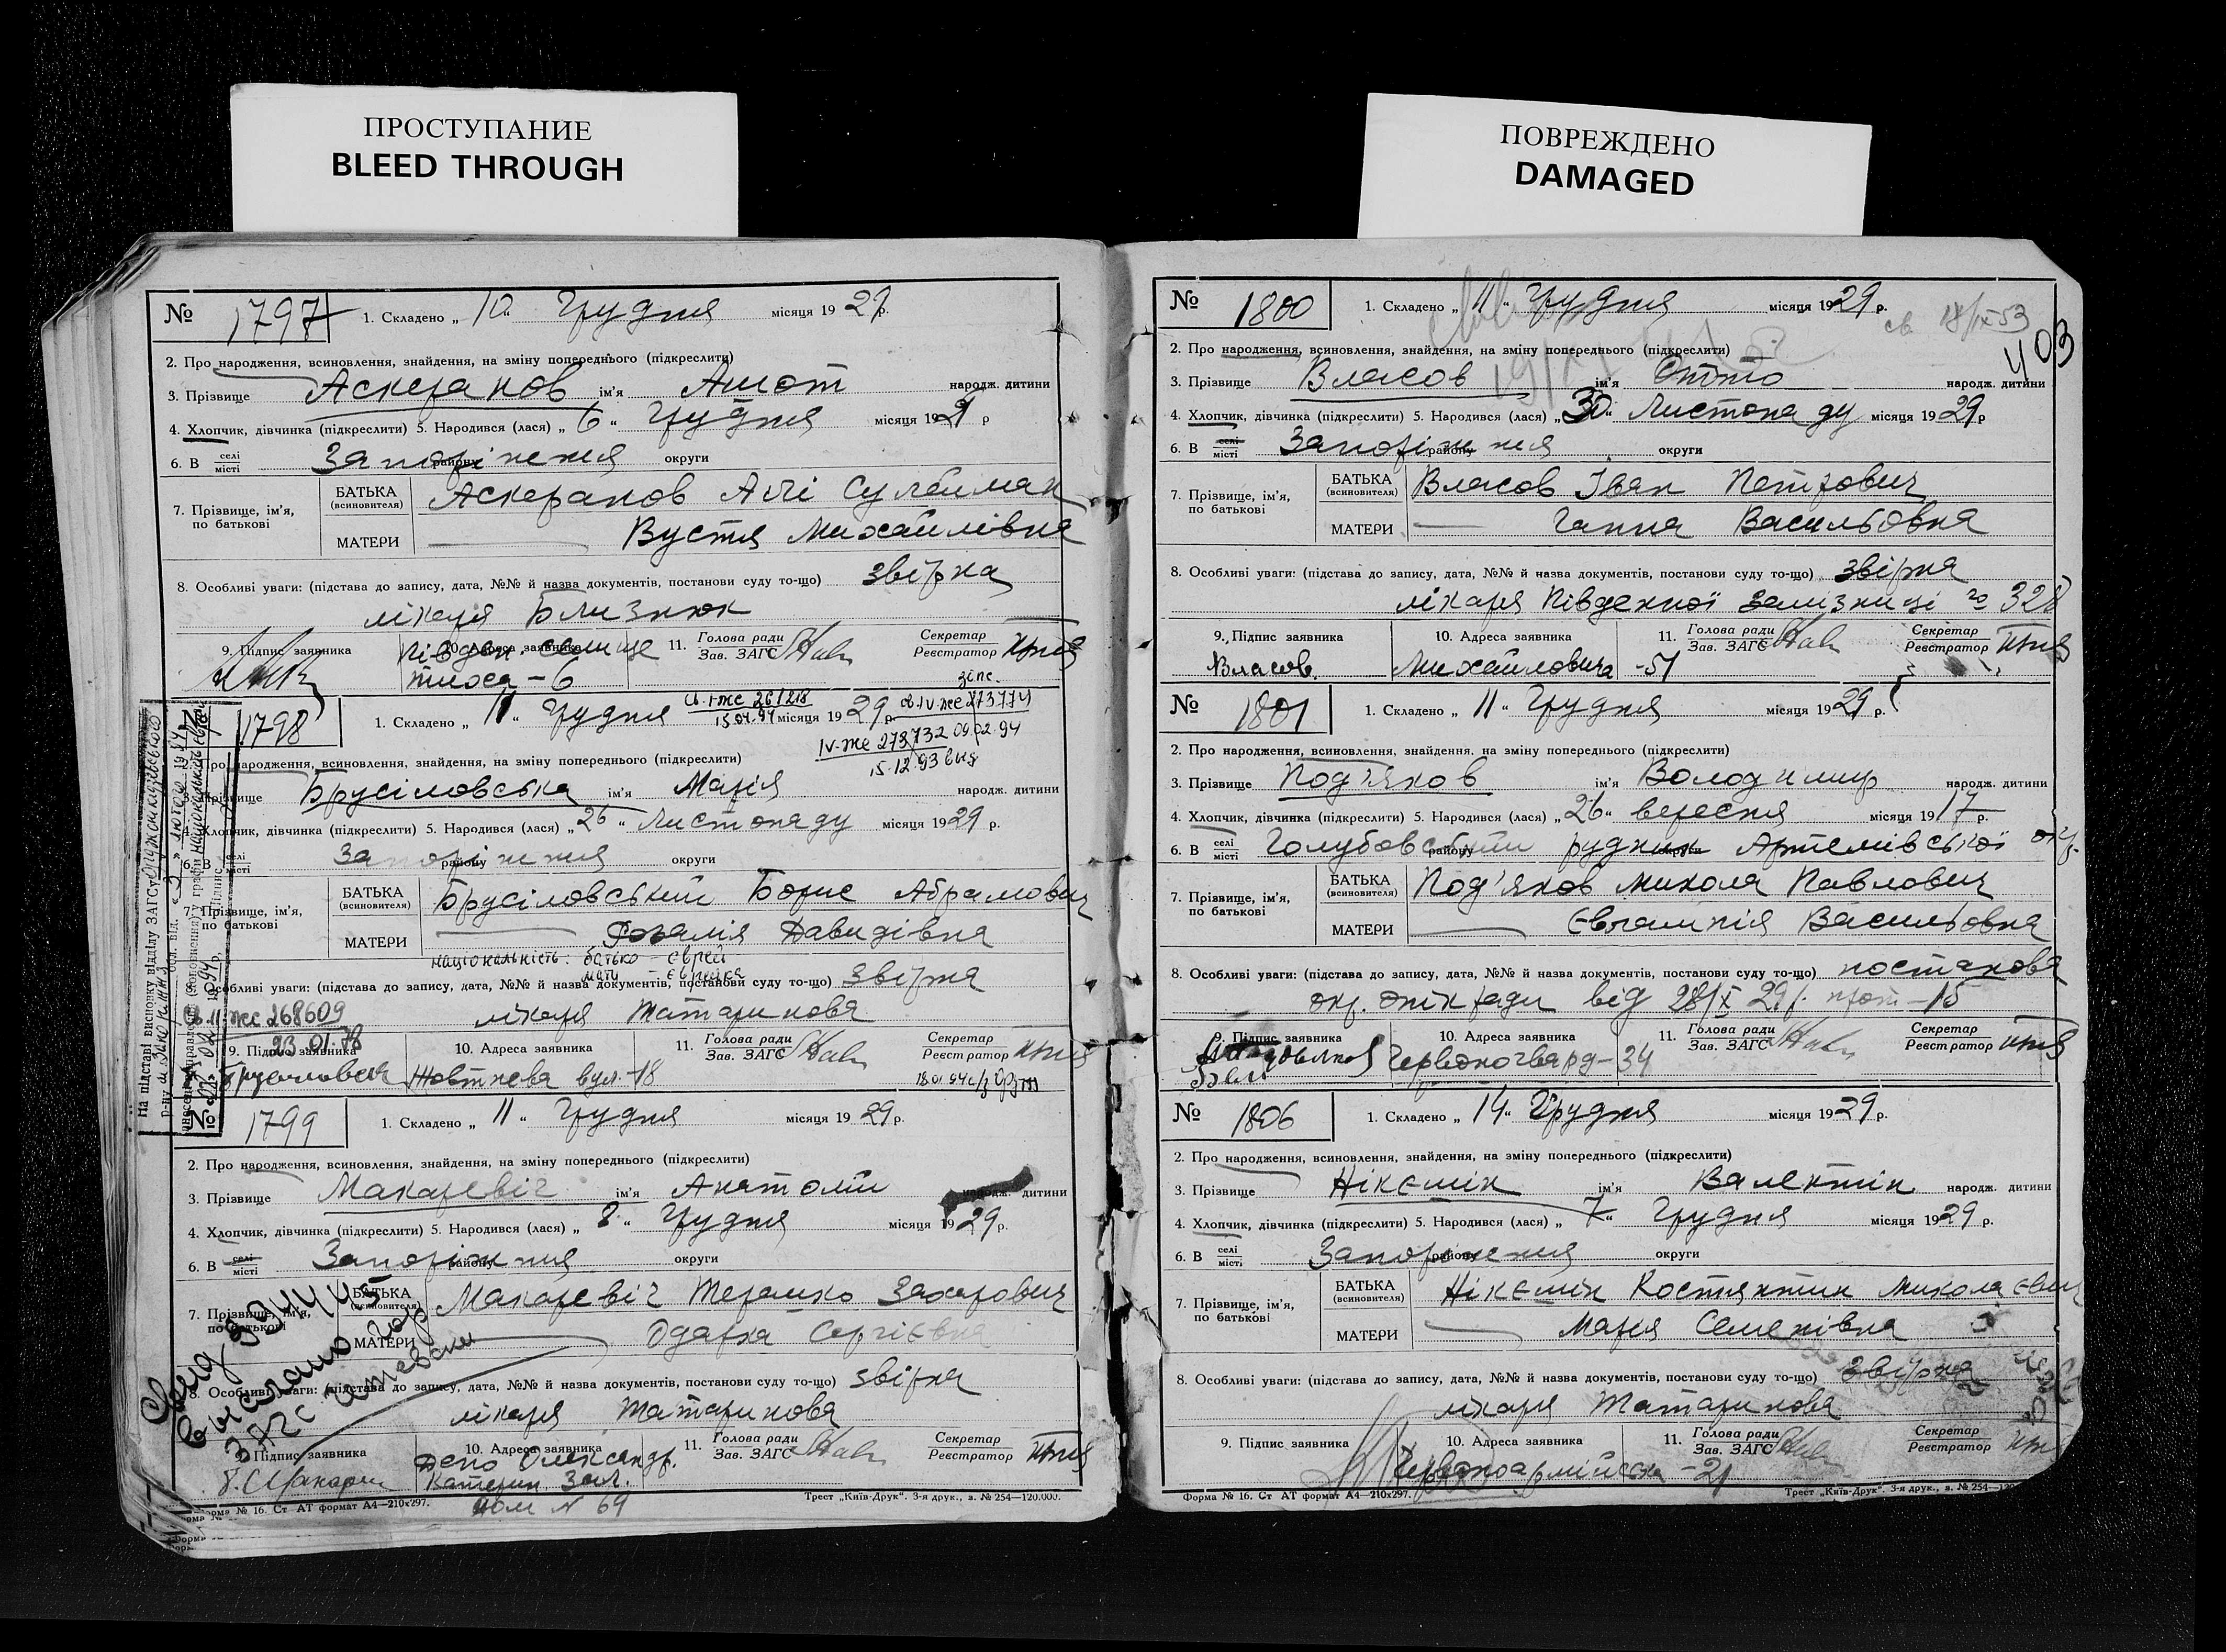 ПРОСТУПАНИЕ
BLEED THROUGH
№ 1797 1. Складено „ 10 “ Грудня місяця 1929 р.
2. Про народження, всиновлення, знайдення, на зміну попереднього (підкреслити)
3. Прізвище Аскеранов ім'я Ашот народж. дитини
4. Хлопчик, дівчинка (підкреслити) 5. Народився (лася) „ 6 “ Грудня місяця 1929 р
6. В селі місті Запоріжжя району округи
7. Прізвище, ім'я, по батькові
БАТЬКА (всиновителя) Аскеранов Алі Сулейман
МАТЕРИ — Вустя Михайлівна
8. Особливі уваги: (підстава до запису, дата, №№ й назва документів, постанови суду то-що) звірка
лікаря Близнюк
9. Підпис заявника 10. Адреса заявника 11. Голова ради Зав. ЗАГС Секретар Реєстратор
Півден. селище
тиоса - 6
№ 1798 1. Складено „ 11 “ Грудня місяця 1929 р.
св. I-же 261218
15.04.94
св. IV-же 273774
IV-же 273732 09.02.94
15.12.93
2. Про народження, всиновлення, знайдення, на зміну попереднього (підкреслити)
3. Прізвище Брусіловська ім'я Марія народж. дитини
4. Хлопчик, дівчинка (підкреслити) 5. Народився (лася) „ 26 “ Листопаду місяця 1929 р.
6. В селі місті Запоріжжя району округи
7. Прізвище, ім'я, по батькові
БАТЬКА (всиновителя) Брусіловський Борис Абрамович
МАТЕРИ — Розалія Давидівна
національність: батько - єврей
мати - єврейка
8. Особливі уваги: (підстава до запису, дата, №№ й назва документів, постанови суду то-що) звірка
лікаря Татаринова
Св. II-же 268609
23.01.78
9. Підпис заявника 10. Адреса заявника 11. Голова ради Зав. ЗАГС Секретар Реєстратор
Брусиловская Жовтнева вул. - 18
18.01.94
На підставі висновку відділу ЗАГСу Орджонікідзевського
р-ну м. Запоріжжя від. « 2 » лютого 1994 р.
№ 1799 1. Складено „ 11 “ Грудня місяця 1929 р.
2. Про народження, всиновлення, знайдення, на зміну попереднього (підкреслити)
3. Прізвище Макаревіч ім'я Анатолій народж. дитини
4. Хлопчик, дівчинка (підкреслити) 5. Народився (лася) „ 8 “ Грудня місяця 1929 р.
6. В селі місті Запоріжжя району округи
7. Прізвище, ім'я, по батькові
БАТЬКА (всиновителя) Макаревіч Терешко Захарович
МАТЕРИ — Одарка Сергієвна
8. Особливі уваги: (підстава до запису, дата, №№ й назва документів, постанови суду то-що) звірка
лікаря Татаринова
9. Підпис заявника 10. Адреса заявника 11. Голова ради Зав. ЗАГС Секретар Реєстратор
Депо Олександр.
Катерин. Зал.
дом N 69
Форма № 16. Ст АТ формат А4—210х297. Трест „Київ-Друк“. 3-я друк., з. № 254—120.000.
ПОВРЕЖДЕНО
DAMAGED
403
№ 1800 1. Складено „ 11 “ Грудня місяця 1929 р.
св. 18/IX 53
2. Про народження, всиновлення, знайдення, на зміну попереднього (підкреслити)
3. Прізвище Власов ім'я Отто народж. дитини
4. Хлопчик, дівчинка (підкреслити) 5. Народився (лася) „ 30 “ Листопаду місяця 1929 р
6. В селі місті Запоріжжя району округи
7. Прізвище, ім'я, по батькові
БАТЬКА (всиновителя) Власов Іван Петрович
МАТЕРИ — Ганна Васильовна
8. Особливі уваги: (підстава до запису, дата, №№ й назва документів, постанови суду то-що) звірка
лікаря Південної зализниці № 328
9. Підпис заявника 10. Адреса заявника 11. Голова ради Зав. ЗАГС Секретар Реєстратор
Власов. Михайловича - 51
№ 1801 1. Складено „ 11 “ Грудня місяця 1929 р.
2. Про народження, всиновлення, знайдення, на зміну попереднього (підкреслити)
3. Прізвище Под'яков ім'я Володимир народж. дитини
4. Хлопчик, дівчинка (підкреслити) 5. Народився (лася) „ 26 “ вересня місяця 1917 р.
6. В селі місті Голубовський рудник Артемівської окр. району округи
7. Прізвище, ім'я, по батькові
БАТЬКА (всиновителя) Под'яков Микола Павлович
МАТЕРИ — Євгампія Васильовна
8. Особливі уваги: (підстава до запису, дата, №№ й назва документів, постанови суду то-що) постанова
окр. опік ради від 28/X 29 р. прот - 15
9. Підпис заявника 10. Адреса заявника 11. Голова ради Зав. ЗАГС Секретар Реєстратор
Червоногвард - 34
№ 1806 1. Складено „ 14 “ Грудня місяця 1929 р.
2. Про народження, всиновлення, знайдення, на зміну попереднього (підкреслити)
3. Прізвище Нікємін ім'я Валентін народж. дитини
4. Хлопчик, дівчинка (підкреслити) 5. Народився (лася) „ 7 “ Грудня місяця 1929 р.
6. В селі місті Запоріжжя району округи
7. Прізвище, ім'я, по батькові
БАТЬКА (всиновителя) Нікємін Костянтин Миколаєвич
МАТЕРИ — Марія Семенівна
8. Особливі уваги: (підстава до запису, дата, №№ й назва документів, постанови суду то-що) звірка
лікаря Татаринова
9. Підпис заявника 10. Адреса заявника 11. Голова ради Зав. ЗАГС Секретар Реєстратор
Червоноармійська - 21
Форма № 16. Ст АТ формат А4—210х297. Трест „Київ-Друк“. 3-я друк., з. № 254—120